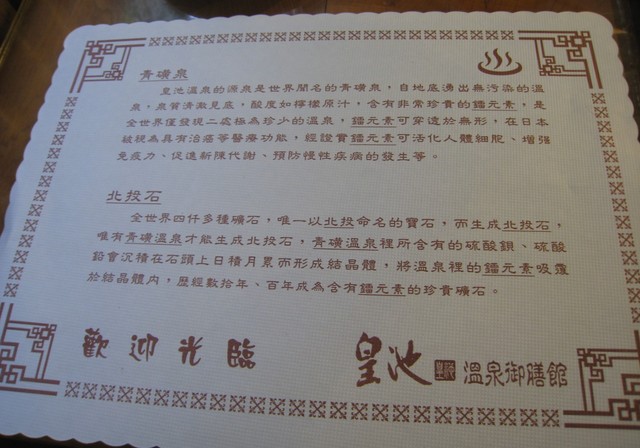 青磺泉
皇池溫泉的源泉是世界聞名的青磺泉，自地底湧出無污染的溫
泉，泉質清澈見底，酸度如檸檬原汁，含有非常珍貴的鐳元素，是
全世界僅發現二處極為珍少的溫泉，鐳元素可穿透於無形，在日本
被視為具有治癌等醫療功能，經證實鐳元素可活化人體細胞、增強
免疫力、促進新陳代謝、預防慢性疾病的發生等。
北投石
全世界四仟多種礦石，唯一以北投命名的寶石，而生成北投石，
唯有青磺溫泉才能生成北投石，青磺溫泉裡所含有的硫酸鋇、硫酸
鉛會沉積在石頭上日積月累而形成結晶體，將溫泉裡的鐳元素吸覆
於結晶體內，歷經數拾年、百年成為含有鐳元素的珍貴礦石。
歡迎光臨
皇池 溫泉御膳館